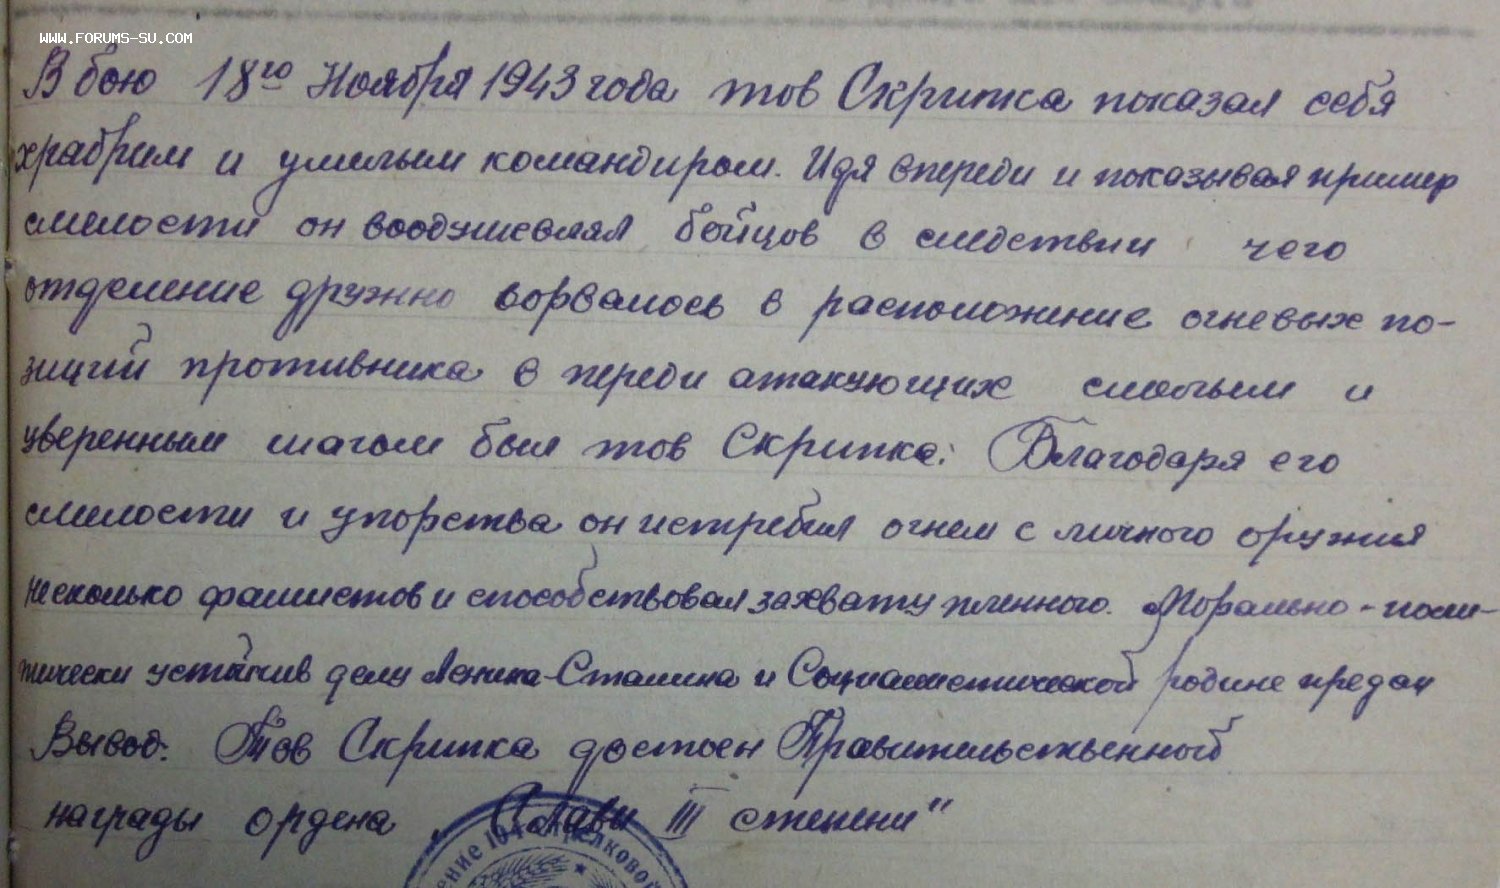 WWW.FORUMS-SU.COM
В бою 18го Ноября 1943 года тов Скрипка показал себя
храбрим и умилым командиром. Идя впереди и показывая пример
смелости он воодушевлял бойцов в следствии чего
отделение дружно ворвалось в расположение огневых по-
зиций противника в переди атакующих смелым и
уверенным шагом был тов Скрипка. Благодаря его
смелости и упорства он истребил огнем с личного оружия
несколько фашистов и способствовал захвату пленного. Морально-поли-
тически устойчив делу Ленина-Сталина и Социалистической родине предан
Вывод: Тов Скрипка достоен Правительственной
награды ордена „Слави III степени"
стрелковой